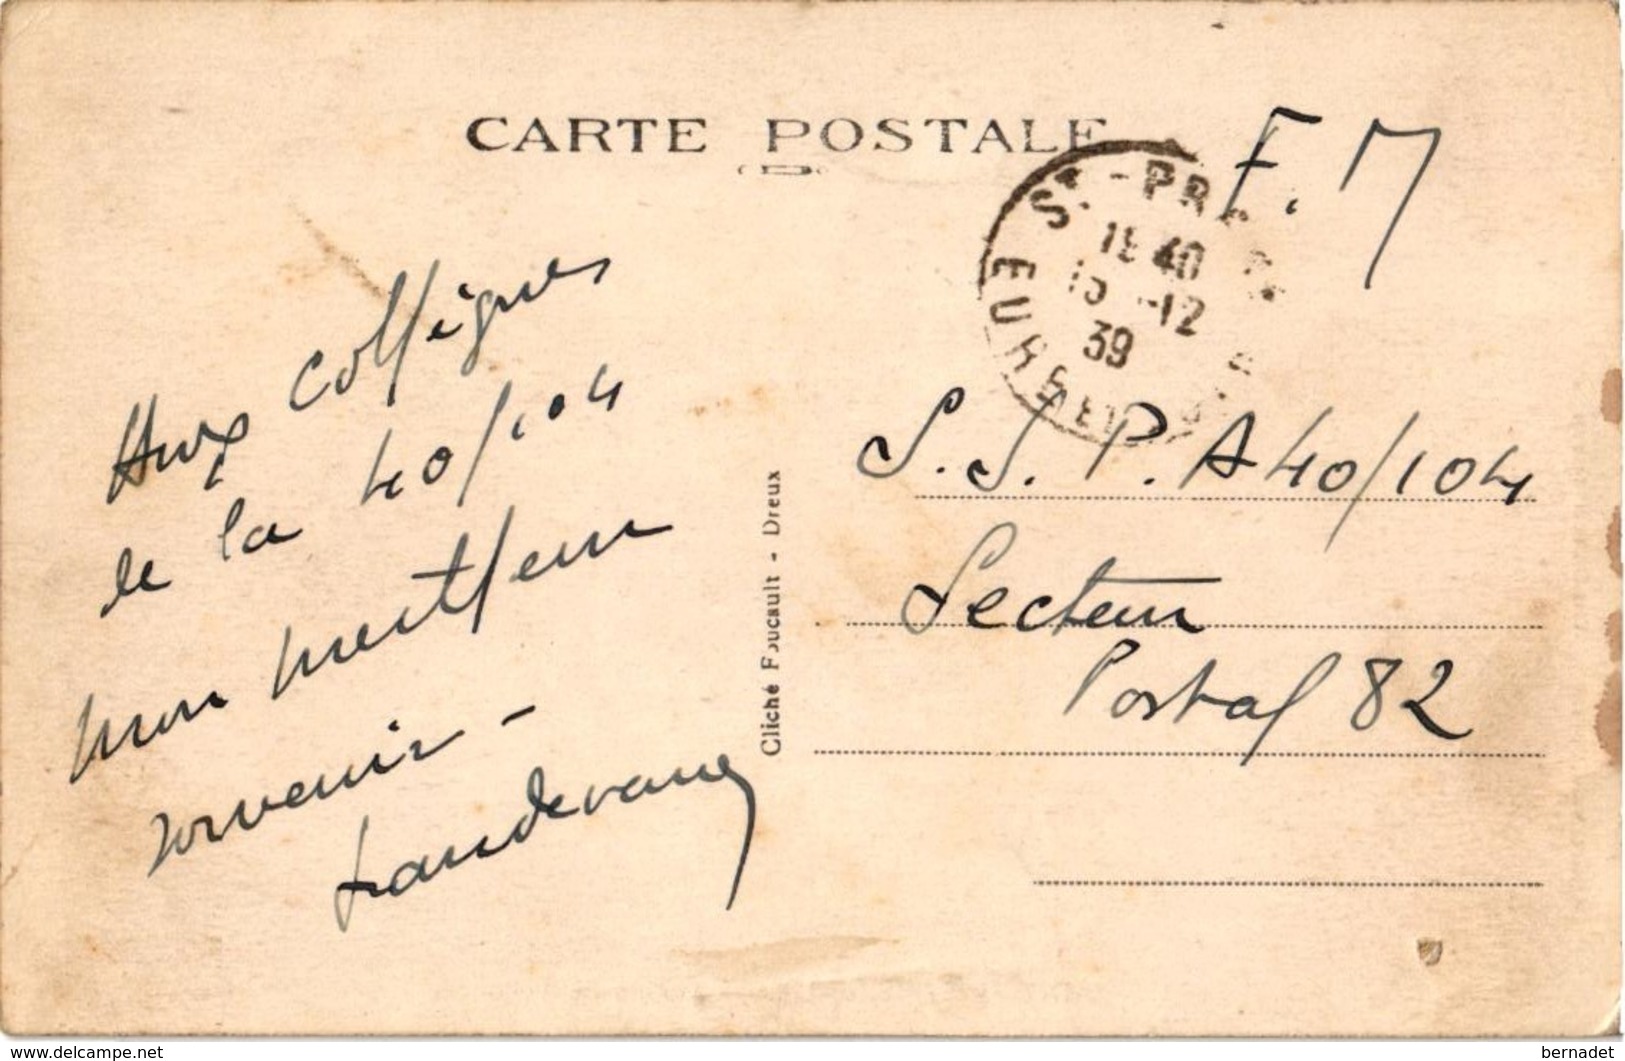 CARTE POSTALE
F. M
18 40
15 -12
39
EURE
Aux collègues
de la 40/104
mon meilleur
souvenir -
S.S.P.A 40/104
Secteur
Postal 82
Cliché Foucault - Dreux
www.delcampe.net
bernadet